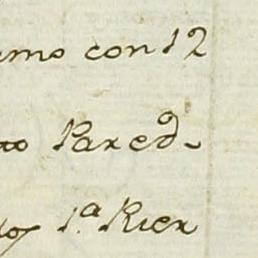 emo con 12
ro Pared.
dos 1.ª Rier